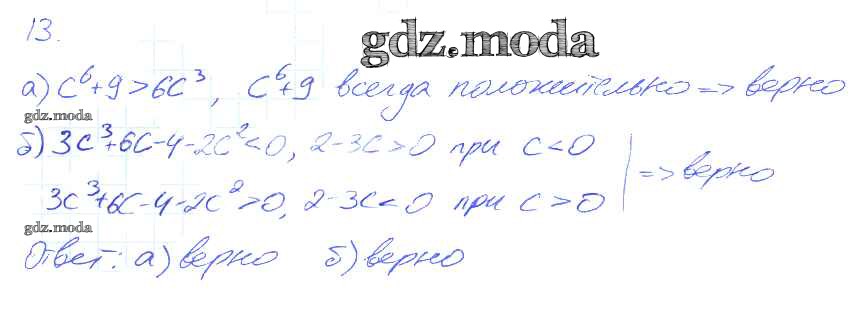 13.
gdz.moda
а) c⁶+9>6c³, c⁶+9 всегда положительно => верно
gdz.moda
б) 3c³+6c-4-2c²<0, 2-3c>0 при c<0
=> верно
3c³+6c-4-2c²>0, 2-3c<0 при c>0
gdz.moda
Ответ: а) верно б) верно